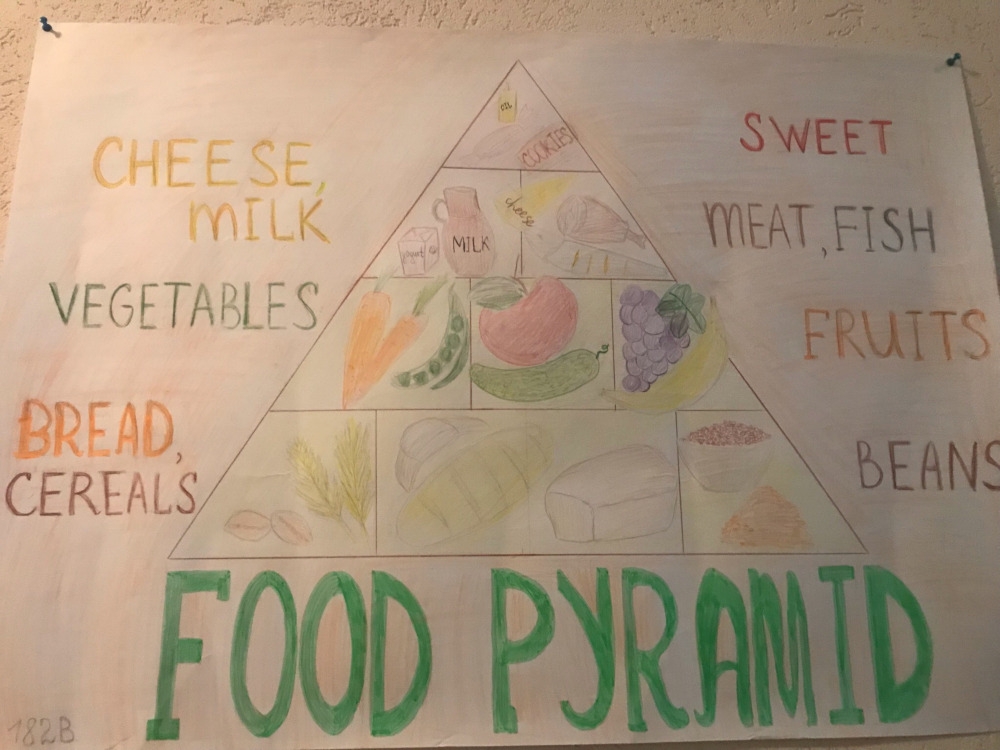 OIL
COOKIES
SWEET
CHEESE,
MILK
yogurt
MILK
cheese
MEAT, FISH
VEGETABLES
FRUITS
BREAD,
CEREALS
BEANS
FOOD PYRAMID
182B